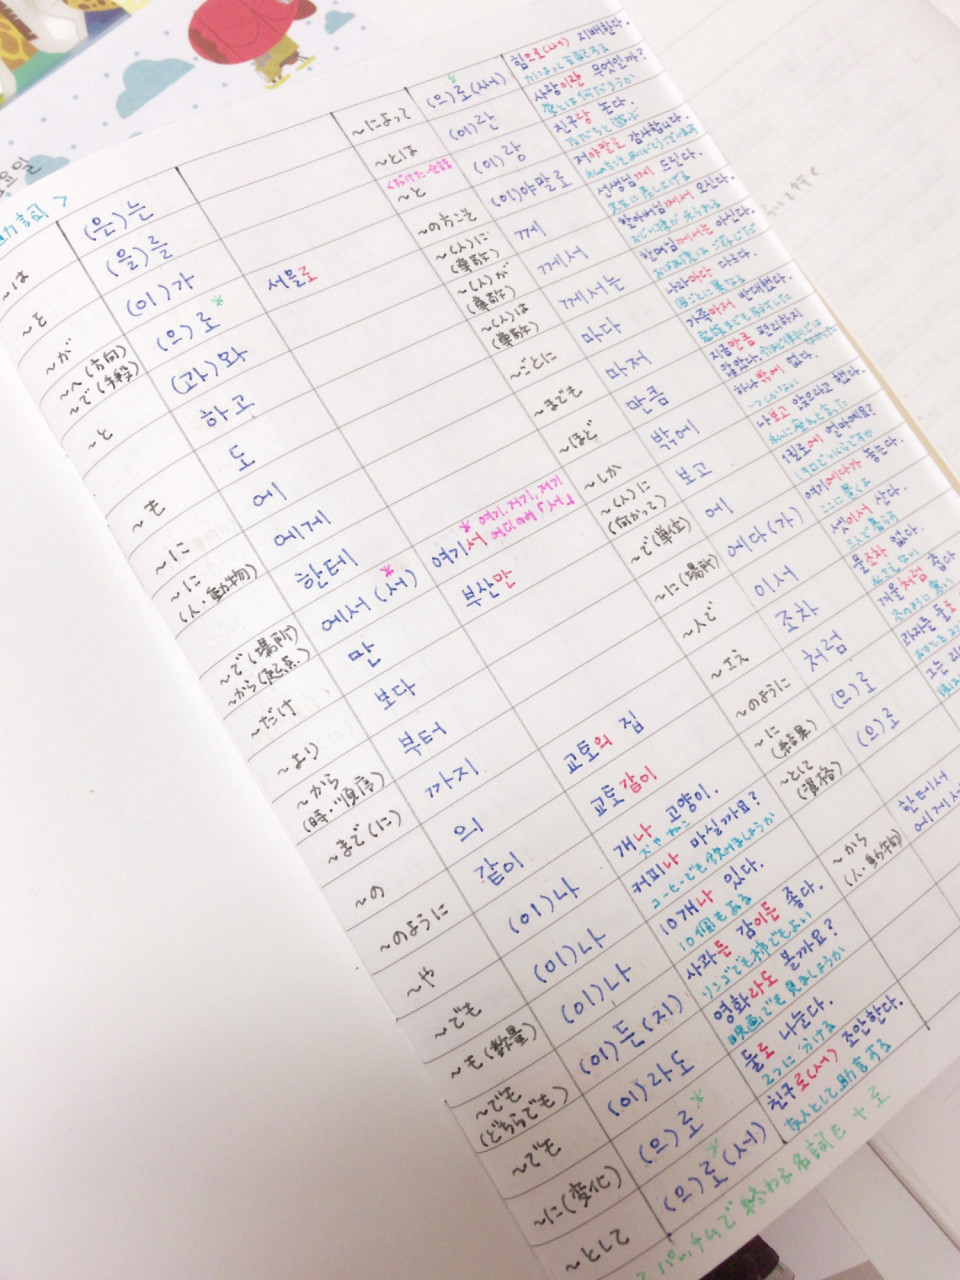 요일
助詞 >
~は (은)는
~を (을)를
~が (이)가
~へ(方向)
~で(手段) (으)로* 서울로
~と (과)와
하고
~も 도
~に 에
~に
(人・動物) 에게
한테
~で(場所)
~から(起点) 에서(서)* 여기서 *여기, 거기, 저기
~だけ 만 부산만
~より 보다
~から
(時・順序) 부터
~まで(に) 까지
~の 의 교토의 집
~のように 같이 교토같이
~や (이)나 개나 고양이.
犬やねこ
~でも (이)나 커피나 마실까요?
コーヒーでも飲みましょうか
~も(数量) (이)나 10개나 있다.
10個もある
~でも
(どちらでも) (이)든(지) 사과든 감이든 좋다.
リンゴでも柿でもよい
~でも (이)라도 영화라도 볼까요?
映画でも見ましょうか
~に(変化) (으)로* 둘로 나눈다.
2つに分ける
~として (으)로(서) 친구로(서) 조안한다.
友人として助言する
パッチムで終わる名詞は + 로
~によって (으)로(서) 힘으로(서) 지배한다.
~とは (이)란 사랑이란 무엇일까?
愛とは何だろうか
~と (이)랑 친구랑 논다.
友だちと遊ぶ
~の方こそ (이)야말로 저야말로 감사합니다.
~(人)に
(尊敬) 께 선생님께 드린다.
先生にさし上げる
~(人)が
(尊敬) 께서 할아버님께서 오신다.
おじい様が来られる
~(人)は
(尊敬) 께서는 할머님께서는 아신다.
~ごとに 마다 나라마다 다르다.
国ごとに異なる
~までも 마저 가족마저 반대한다.
~ほど 만큼 지금만큼 편리하지
않았다.
~しか 밖에 하나밖에 없다.
~(人)に
(向かって) 보고 나보고 앉으라고 했다.
~で(単位) 에 1킬로에 얼마예요?
1キロでいくらですか
~に(場所) 에다(가) 여기에다가 놓는다.
ここに置くよ
~人で 이서 셋이서 산다.
3人で暮らす
~さえ 조차 물조차 없다.
~のように 처럼 겨울처럼 춥다
冬のように寒い
~に
(結果) (으)로
~として
(資格) (으)로
~から
(人・動物) 한테서
에게서